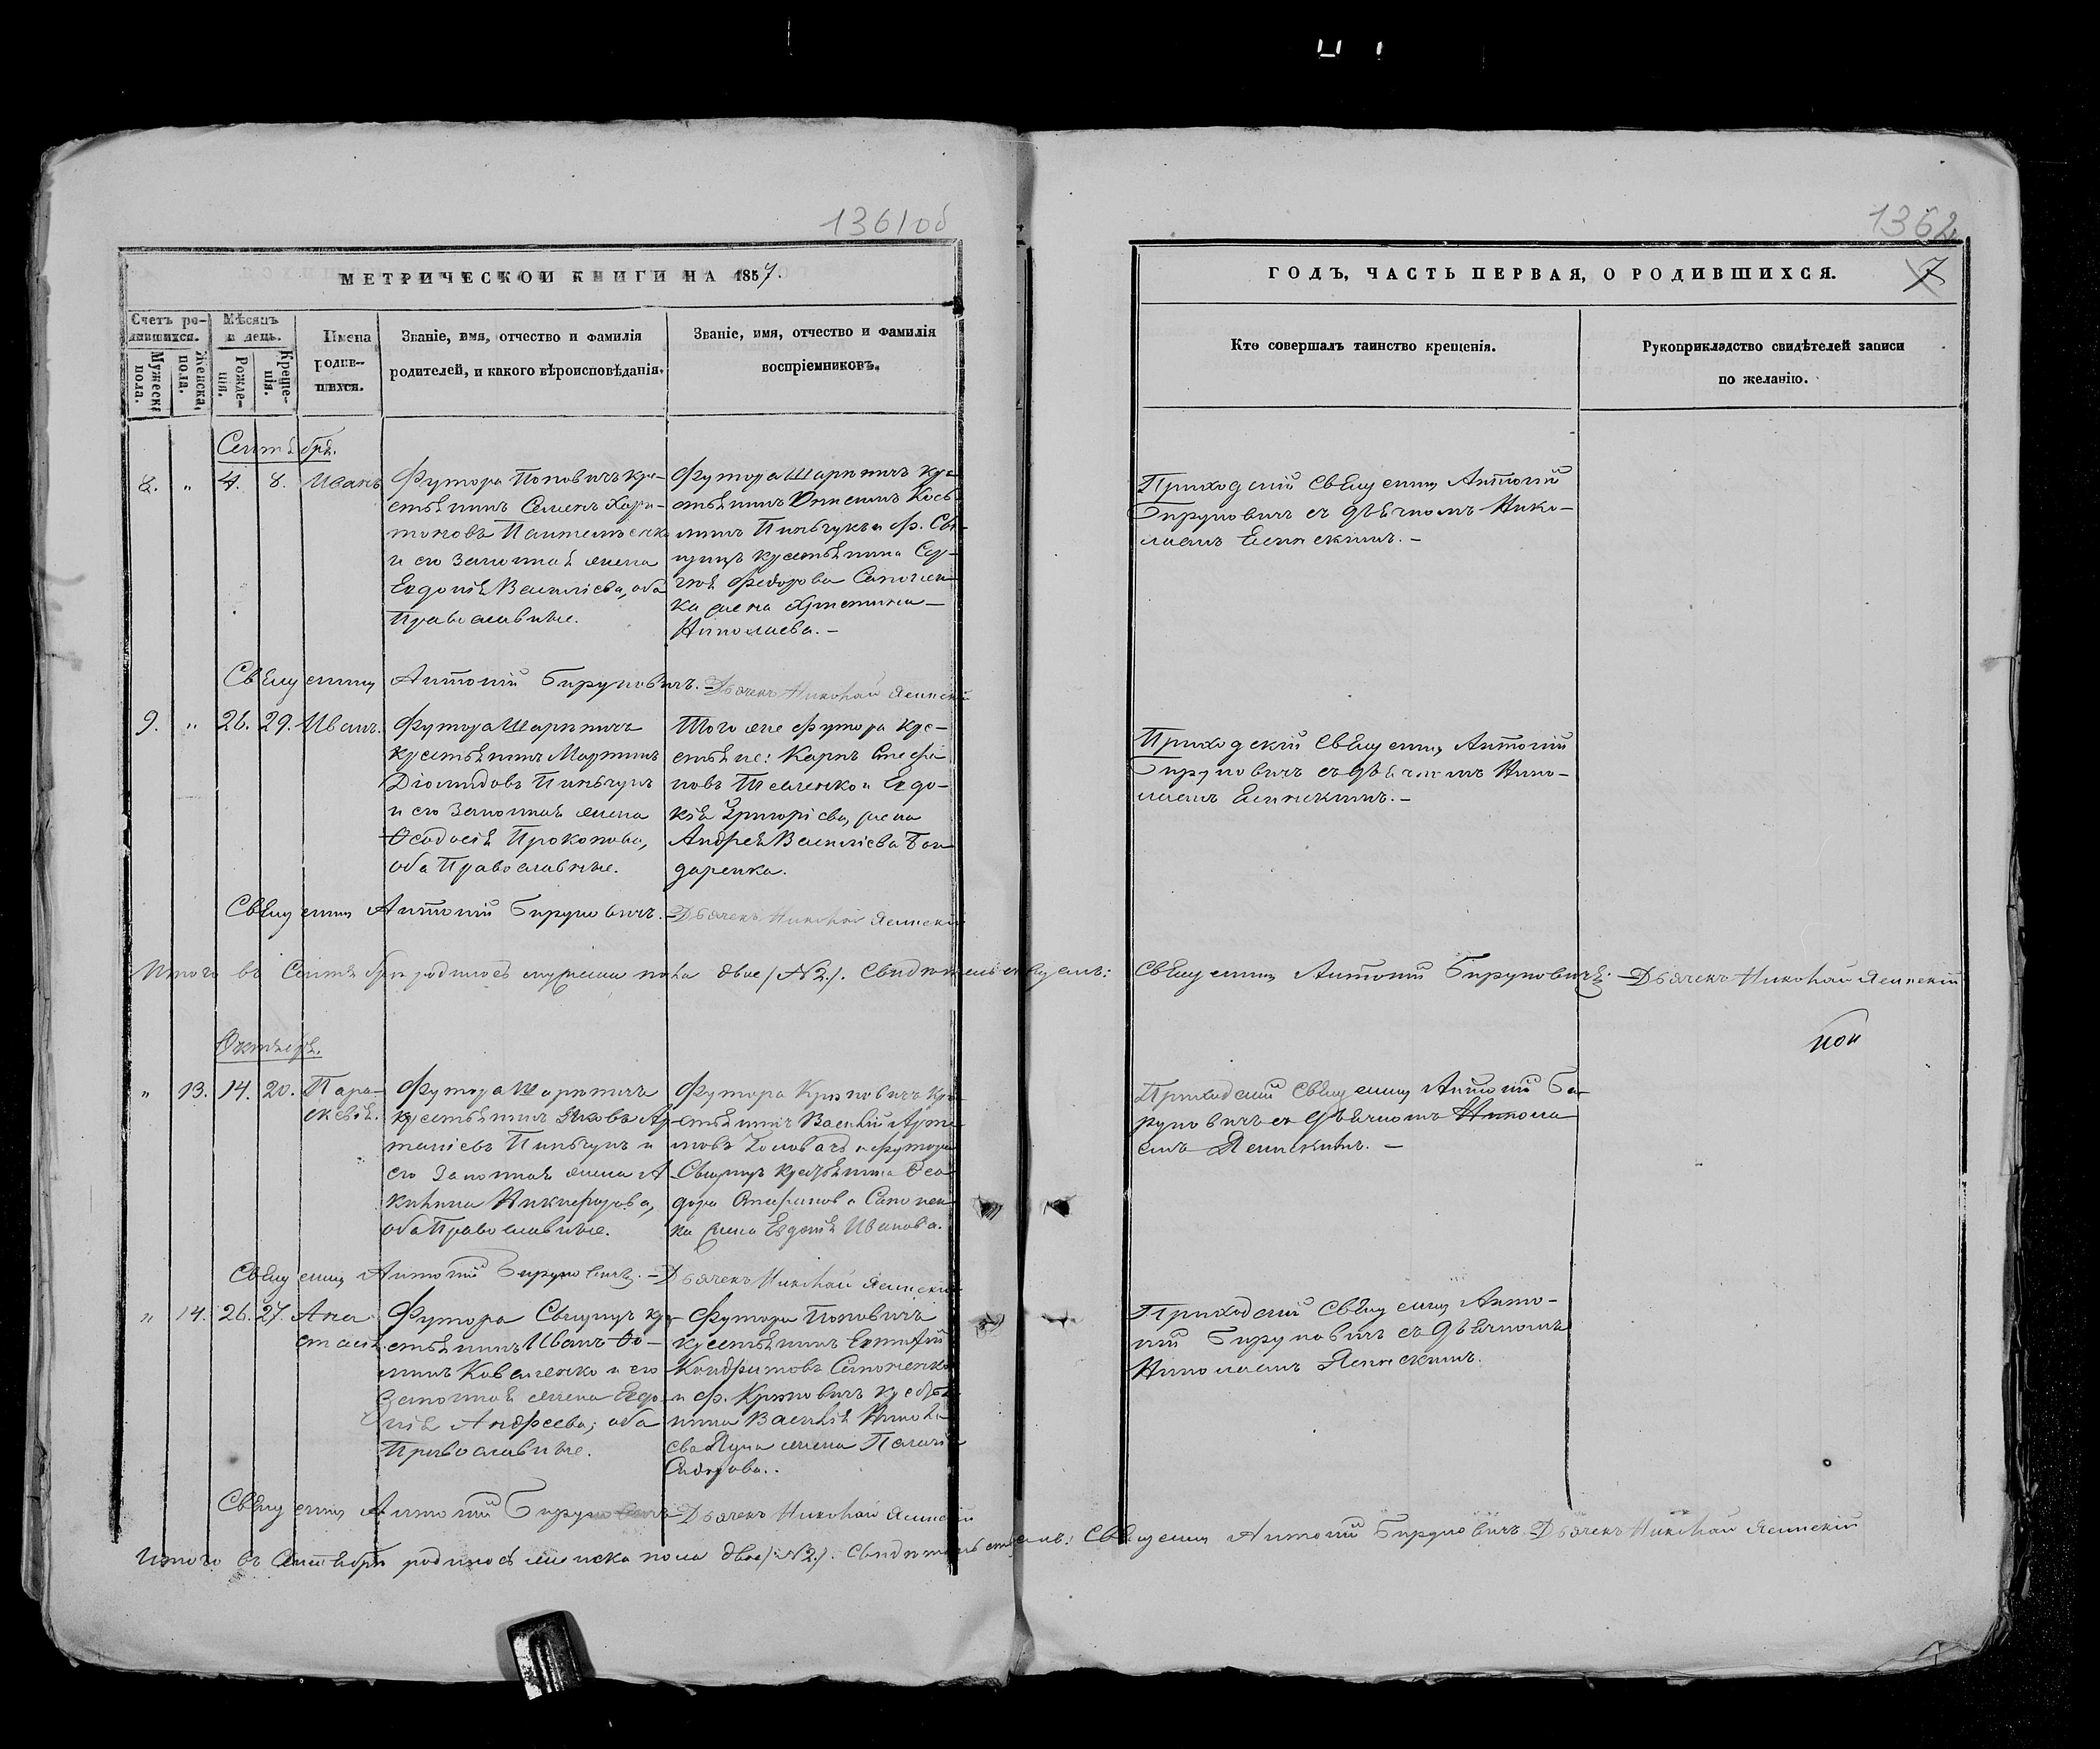 1361об
МЕТРИЧЕСКОИ КНИГИ НА 1857.
Счетъ ро-
дившихся.
Мѣсяцъ
и день.
Имена
родив-
шихся.
Званіе, имя, отчество и фамилія
родителей, и какого вѣроисповѣданія.
Званіе, имя, отчество и фамилія
воспріемниковъ.
Мужеска
пола.
Женска,
пола.
Рожде-
нія.
Креще-
нія.
Сентября.
8. " 4. 8. Иванъ
Футора Поповичъ кре-
стьянинъ Семенъ Хари-
тоновъ Пантеленко
и его законная жена
Евдокія Василіева, оба
Православные.
Футора Шарпичъ кре-
стьянинъ
Пинчукъ и ф. Сви-
нуцъ крестьянина Сер-
гея Федорова Сапочен-
ка жена Христина
Николаева. –
Священникъ Антоній Бируновичъ. – Дьячекъ Николай Яслнскій
9. " 26. 29. Иванъ.
Футора Шарпичъ
крестьянинъ Мартинъ
Діомидовъ Пинчукъ
и его законная жена
Ѳеодосія Прокопова,
оба Православные.
Того же футора кре-
стьяне: Карпъ Стефа
новъ и Евдо-
кія Григоріева, жена
Андрея Василіева Бон
даренка.
Священникъ Антоній Бируновичъ. – Дьячекъ Николай
Итого въ Сентябрѣ родилось мужеска пола двое (№ 2.). Свидѣтельствуемъ:
Октября.
" 13. 14. 20. Пара-
скевія.
Футора Шарпичъ
крестьянинъ Яковъ Ар-
таніевъ Пинчукъ и
его законная жена А
килина Никифорова,
оба Православные.
Футора Крюковичъ кре-
стьянинъ Василій Арте-
мовъ и футора
Свинуцъ крестьянина Ѳео
дора Стефанова Сапочен
ка жена Евдокія Иванова.
Священникъ Антоній Бируновичъ. – Дьячекъ Николай
" 14. 26. 27. Ана
стасія.
Футора Свинуцъ кре-
стьянинъ Иванъ Ѳо-
минъ Коваленко и его
законная жена Евдо-
кія Андреева, оба
Православные.
Футора Поповичъ
крестьянинъ Евтифій
Кондратовъ Сапоченко
и ф. Крюковичъ крестья
нина Василія Никола
ева жена Пелагія
Сидорова.
Священникъ Антоній Бируновичъ Дьячекъ Николай
Итого въ Октябрѣ родилось женска пола двое (№ 2.). Свидѣтельствуемъ: Священникъ Антоній Бируновичъ Дьячекъ Николай
1362
7
ГОДЪ, ЧАСТЬ ПЕРВАЯ, О РОДИВШИХСЯ.
Кто совершалъ таинство крещенія.
Рукоприкладство свидѣтелей записи
по желанію.
Приходскій Священникъ Антоній
Бируновичъ съ дьячкомъ Нико-
лаемъ
Приходскій Священникъ Антоній
Бируновичъ съ дьячкомъ Нико-
лаемъ
Священникъ Антоній Бируновичъ. – Дьячекъ Николай
Приходскій Священникъ Антоній Би-
руновичъ съ дьячкомъ Никола
емъ
Приходскій Священникъ Анто-
ній Бируновичъ съ дьячкомъ
Николаемъ